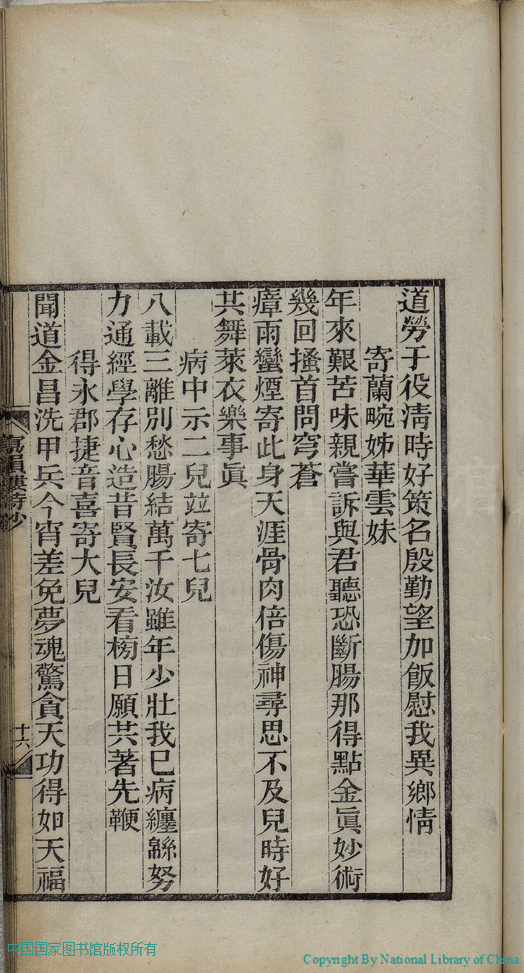 道勞于役清時好策名殷勤望加飯慰我異鄉情
寄蘭畹姊華雲妹
年來艱苦味親嘗訴與君聽恐斷腸那得點金眞妙術
幾回搔首問穹蒼
瘴雨蠻煙寄此身天涯骨肉倍傷神尋思不及兒時好
共舞萊衣樂事眞
病中示二兒竝寄七兒
八載三離別愁腸結萬千汝雖年少壯我已病纏緜努
力通經學存心造昔賢長安看榜日願共著先鞭
得永郡捷音喜寄大兒
聞道金昌洗甲兵今宵差免夢魂驚貪天功得如天福
韻樓詩鈔
十六
中国国家图书馆版权所有
Copyright By National Library of China